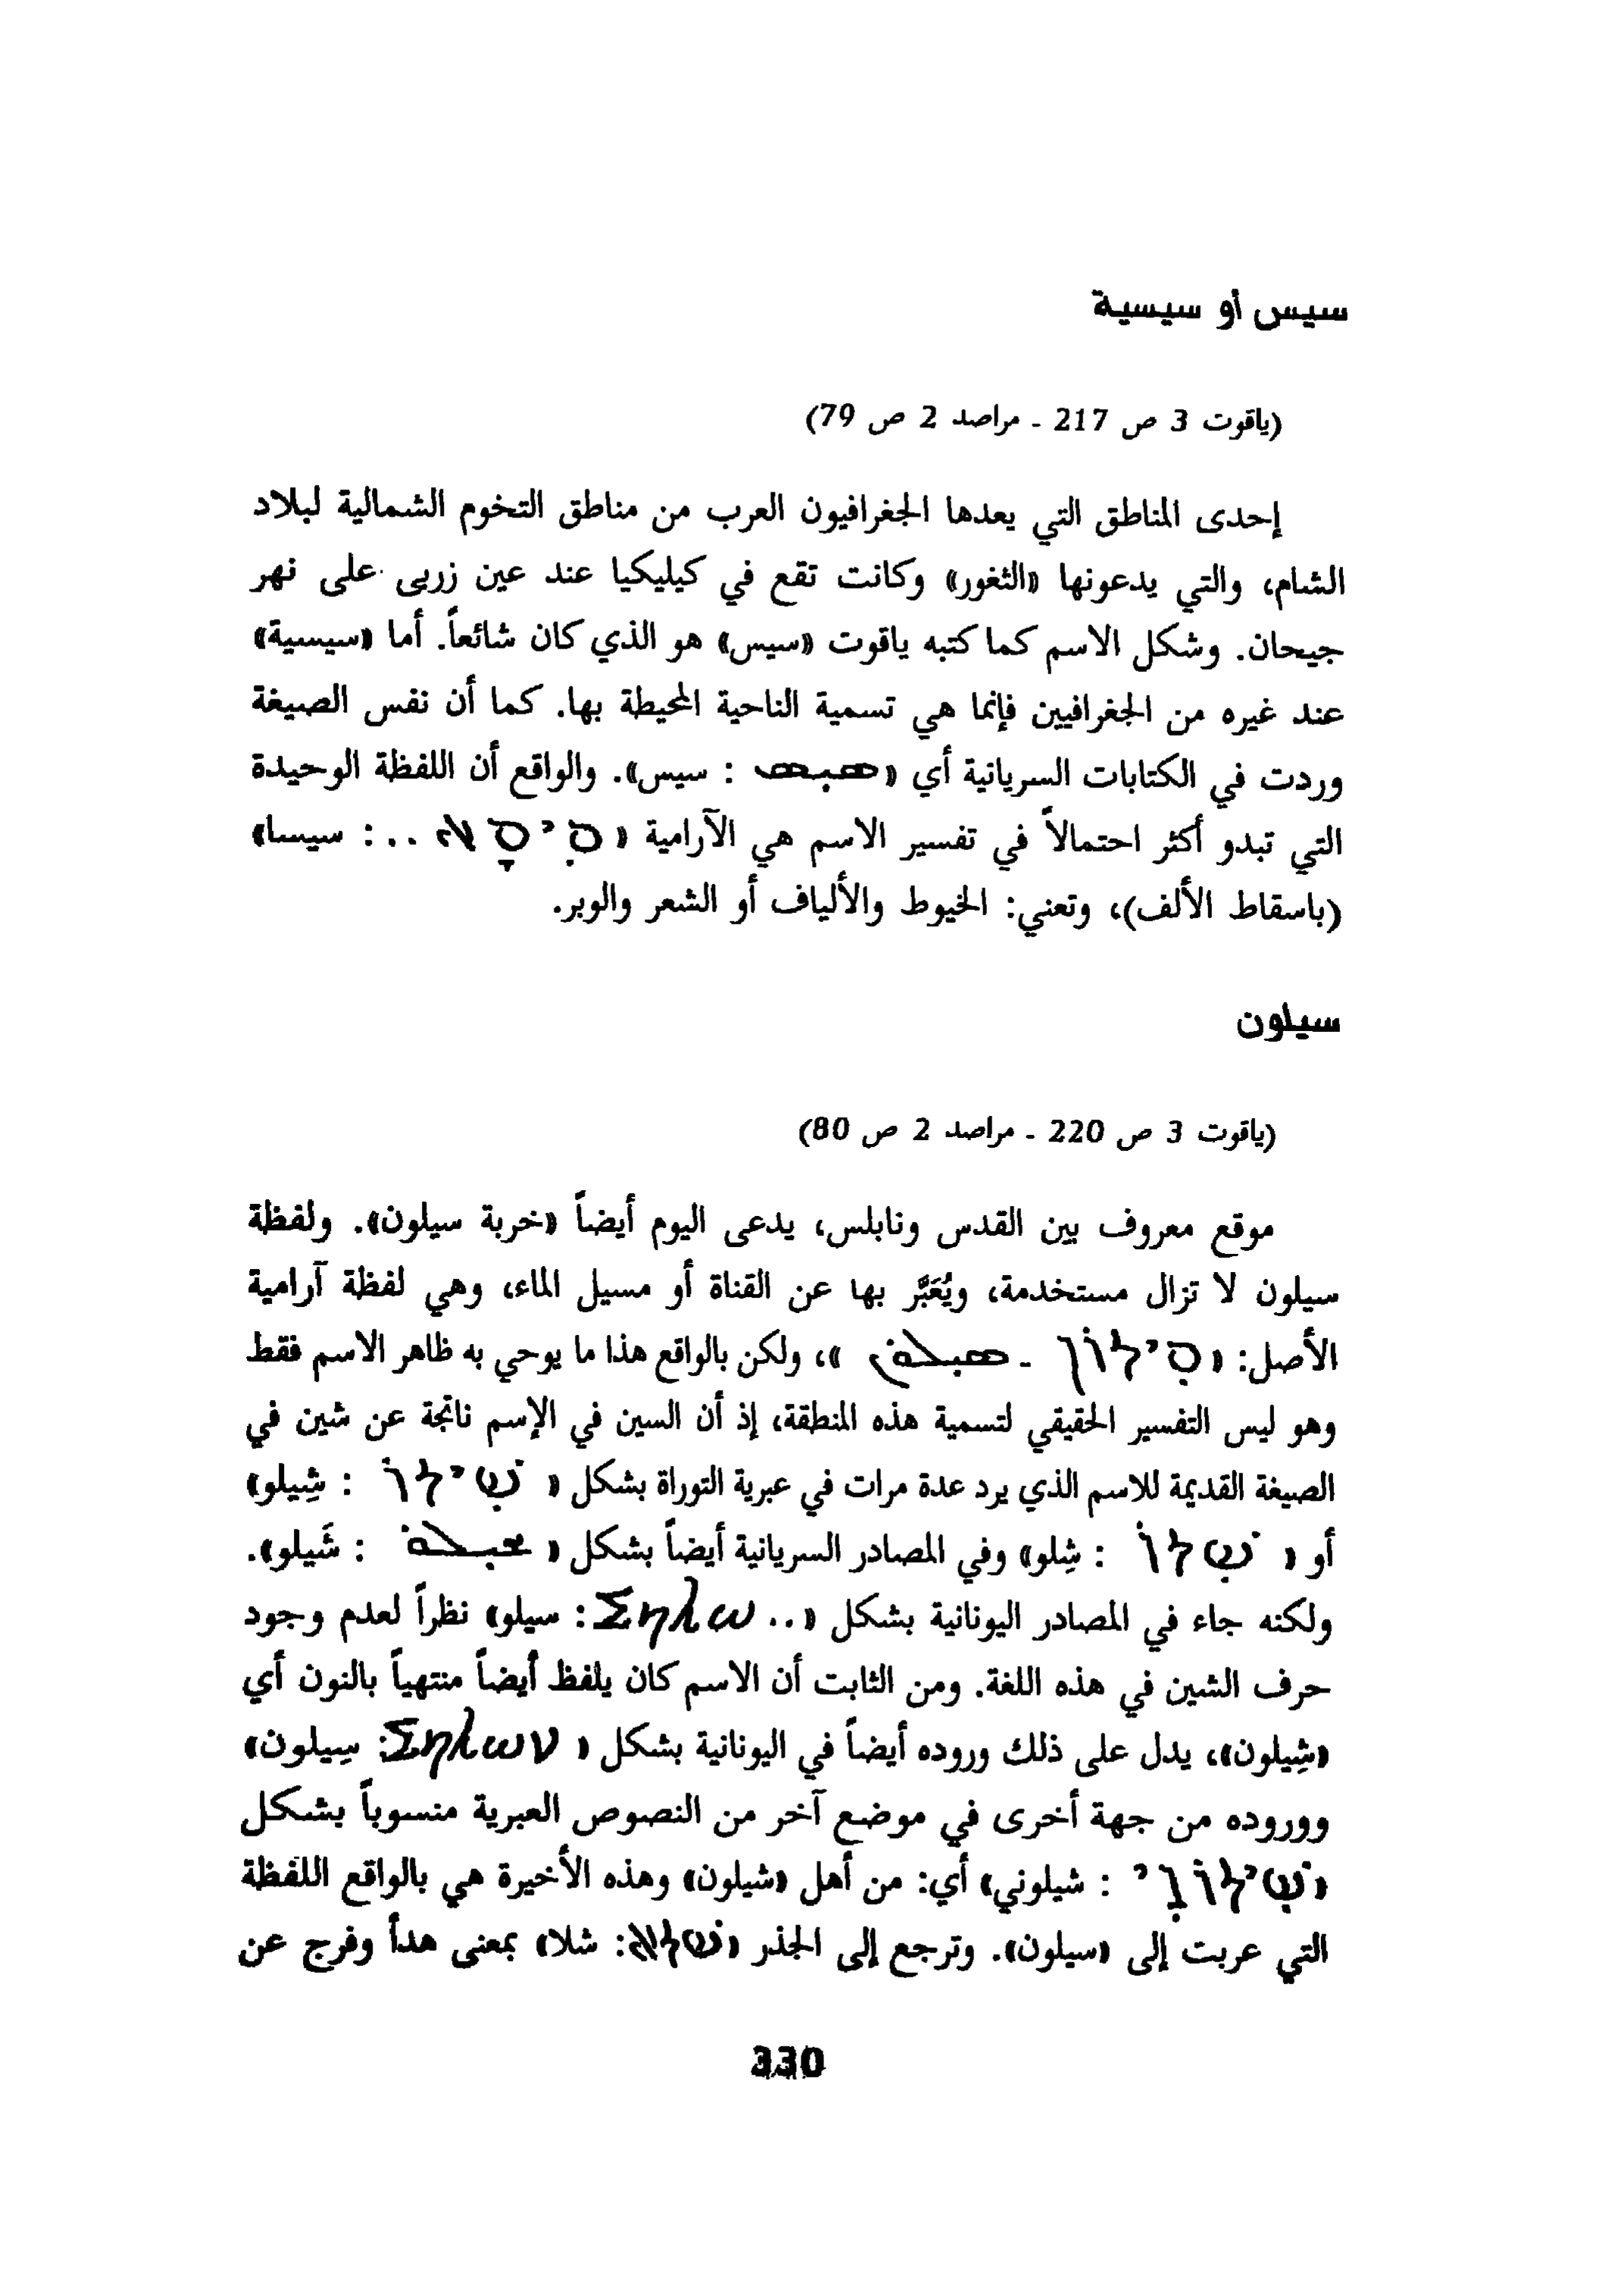 سيس أو سيسية
(ياقوت 3 ص 217 - مراصد 2 ص 79)
إحدى المناطق التي يعدها الجغرافيون العرب من مناطق التخوم الشمالية لبلاد
الشام، والتي يدعونها «الثغور» وكانت تقع في كيليكيا عند عين زربى على نهر
جيحان. وشكل الاسم كما كتبه ياقوت «سيس» هو الذي كان شائعاً. أما «سيسية»
عند غيره من الجغرافيين فإنما هي تسمية الناحية المحيطة بها. كما أن نفس الصيغة
وردت في الكتابات السريانية أي «ܣܝܣ : سيس». والواقع أن اللفظة الوحيدة
التي تبدو أكثر احتمالاً في تفسير الاسم هي الآرامية «סִיסָא .. : سيسا»
(باسقاط الألف)، وتعني: الخيوط والألياف أو الشعر والوبر.
سيلون
(ياقوت 3 ص 220 - مراصد 2 ص 80)
موقع معروف بين القدس ونابلس، يدعى اليوم أيضاً «خربة سيلون». ولفظة
سيلون لا تزال مستخدمة، ويُعَبَّر بها عن القناة أو مسيل الماء، وهي لفظة آرامية
الأصل: «סִילוֹן - ܣܝܠܘܢ »، ولكن بالواقع هذا ما يوحي به ظاهر الاسم فقط
وهو ليس التفسير الحقيقي لتسمية هذه المنطقة، إذ أن السين في الإسم ناتجة عن شين في
الصيغة القديمة للاسم الذي يرد عدة مرات في عبرية التوراة بشكل « שִׁילוֹ : شِيلو»
أو « שִׁלוֹ : شِلو» وفي المصادر السريانية أيضاً بشكل « ܫܝܠܘ : شَيلو».
ولكنه جاء في المصادر اليونانية بشكل «.. Σηλω : سيلو» نظراً لعدم وجود
حرف الشين في هذه اللغة. ومن الثابت أن الاسم كان يلفظ أيضاً منتهياً بالنون أي
«شِيلون»، يدل على ذلك وروده أيضاً في اليونانية بشكل « Σηλων: سِيلون»
ووروده من جهة أخرى في موضع آخر من النصوص العبرية منسوباً بشكل
«שִׁילוֹנִי : شيلوني» أي: من أهل «شيلون» وهذه الأخيرة هي بالواقع اللفظة
التي عربت إلى «سيلون». وترجع إلى الجذر «שׁלא: شلا» بمعنى هدأ وفرج عن
330